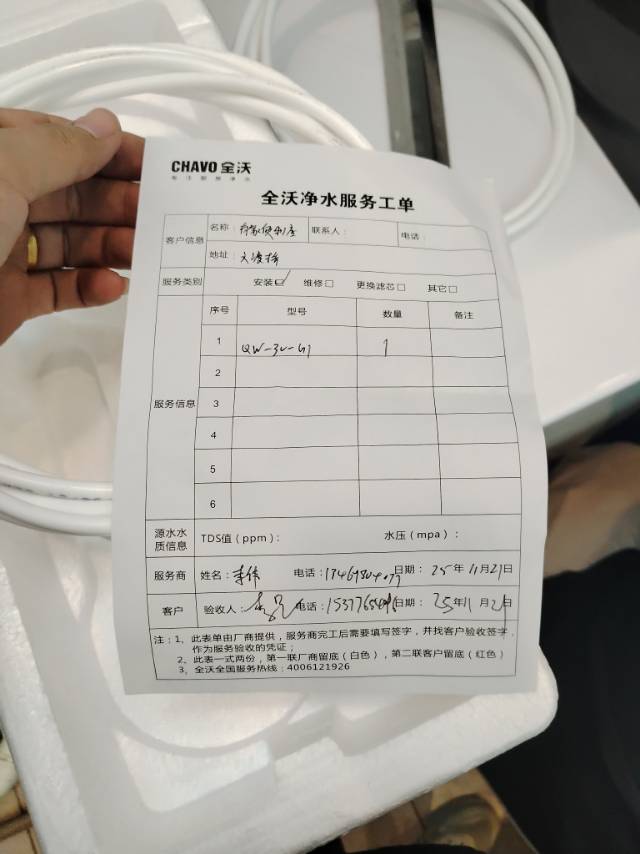 CHAVO 全沃
专注智慧净水
全沃净水服务工单
客户信息 名称: 便利店 联系人: 电话:
地址: 大凌桥
服务类别 安装☑ 维修□ 更换滤芯□ 其它□
服务信息 序号 型号 数量 备注
1 QW-3V-G1 1
2
3
4
5
6
源水水质信息 TDS值(ppm): 水压(mpa):
服务商 姓名: 李伟 电话: 日期: 25年11月21日
客户 验收人: 电话: 日期: 25年11月21日
注:1、此表单由厂商提供,服务商完工后需要填写签字,并找客户验收签字,
作为服务验收的凭证;
2、此表一式两份,第一联厂商留底(白色),第二联客户留底(红色)
3、全沃全国服务热线:4006121926